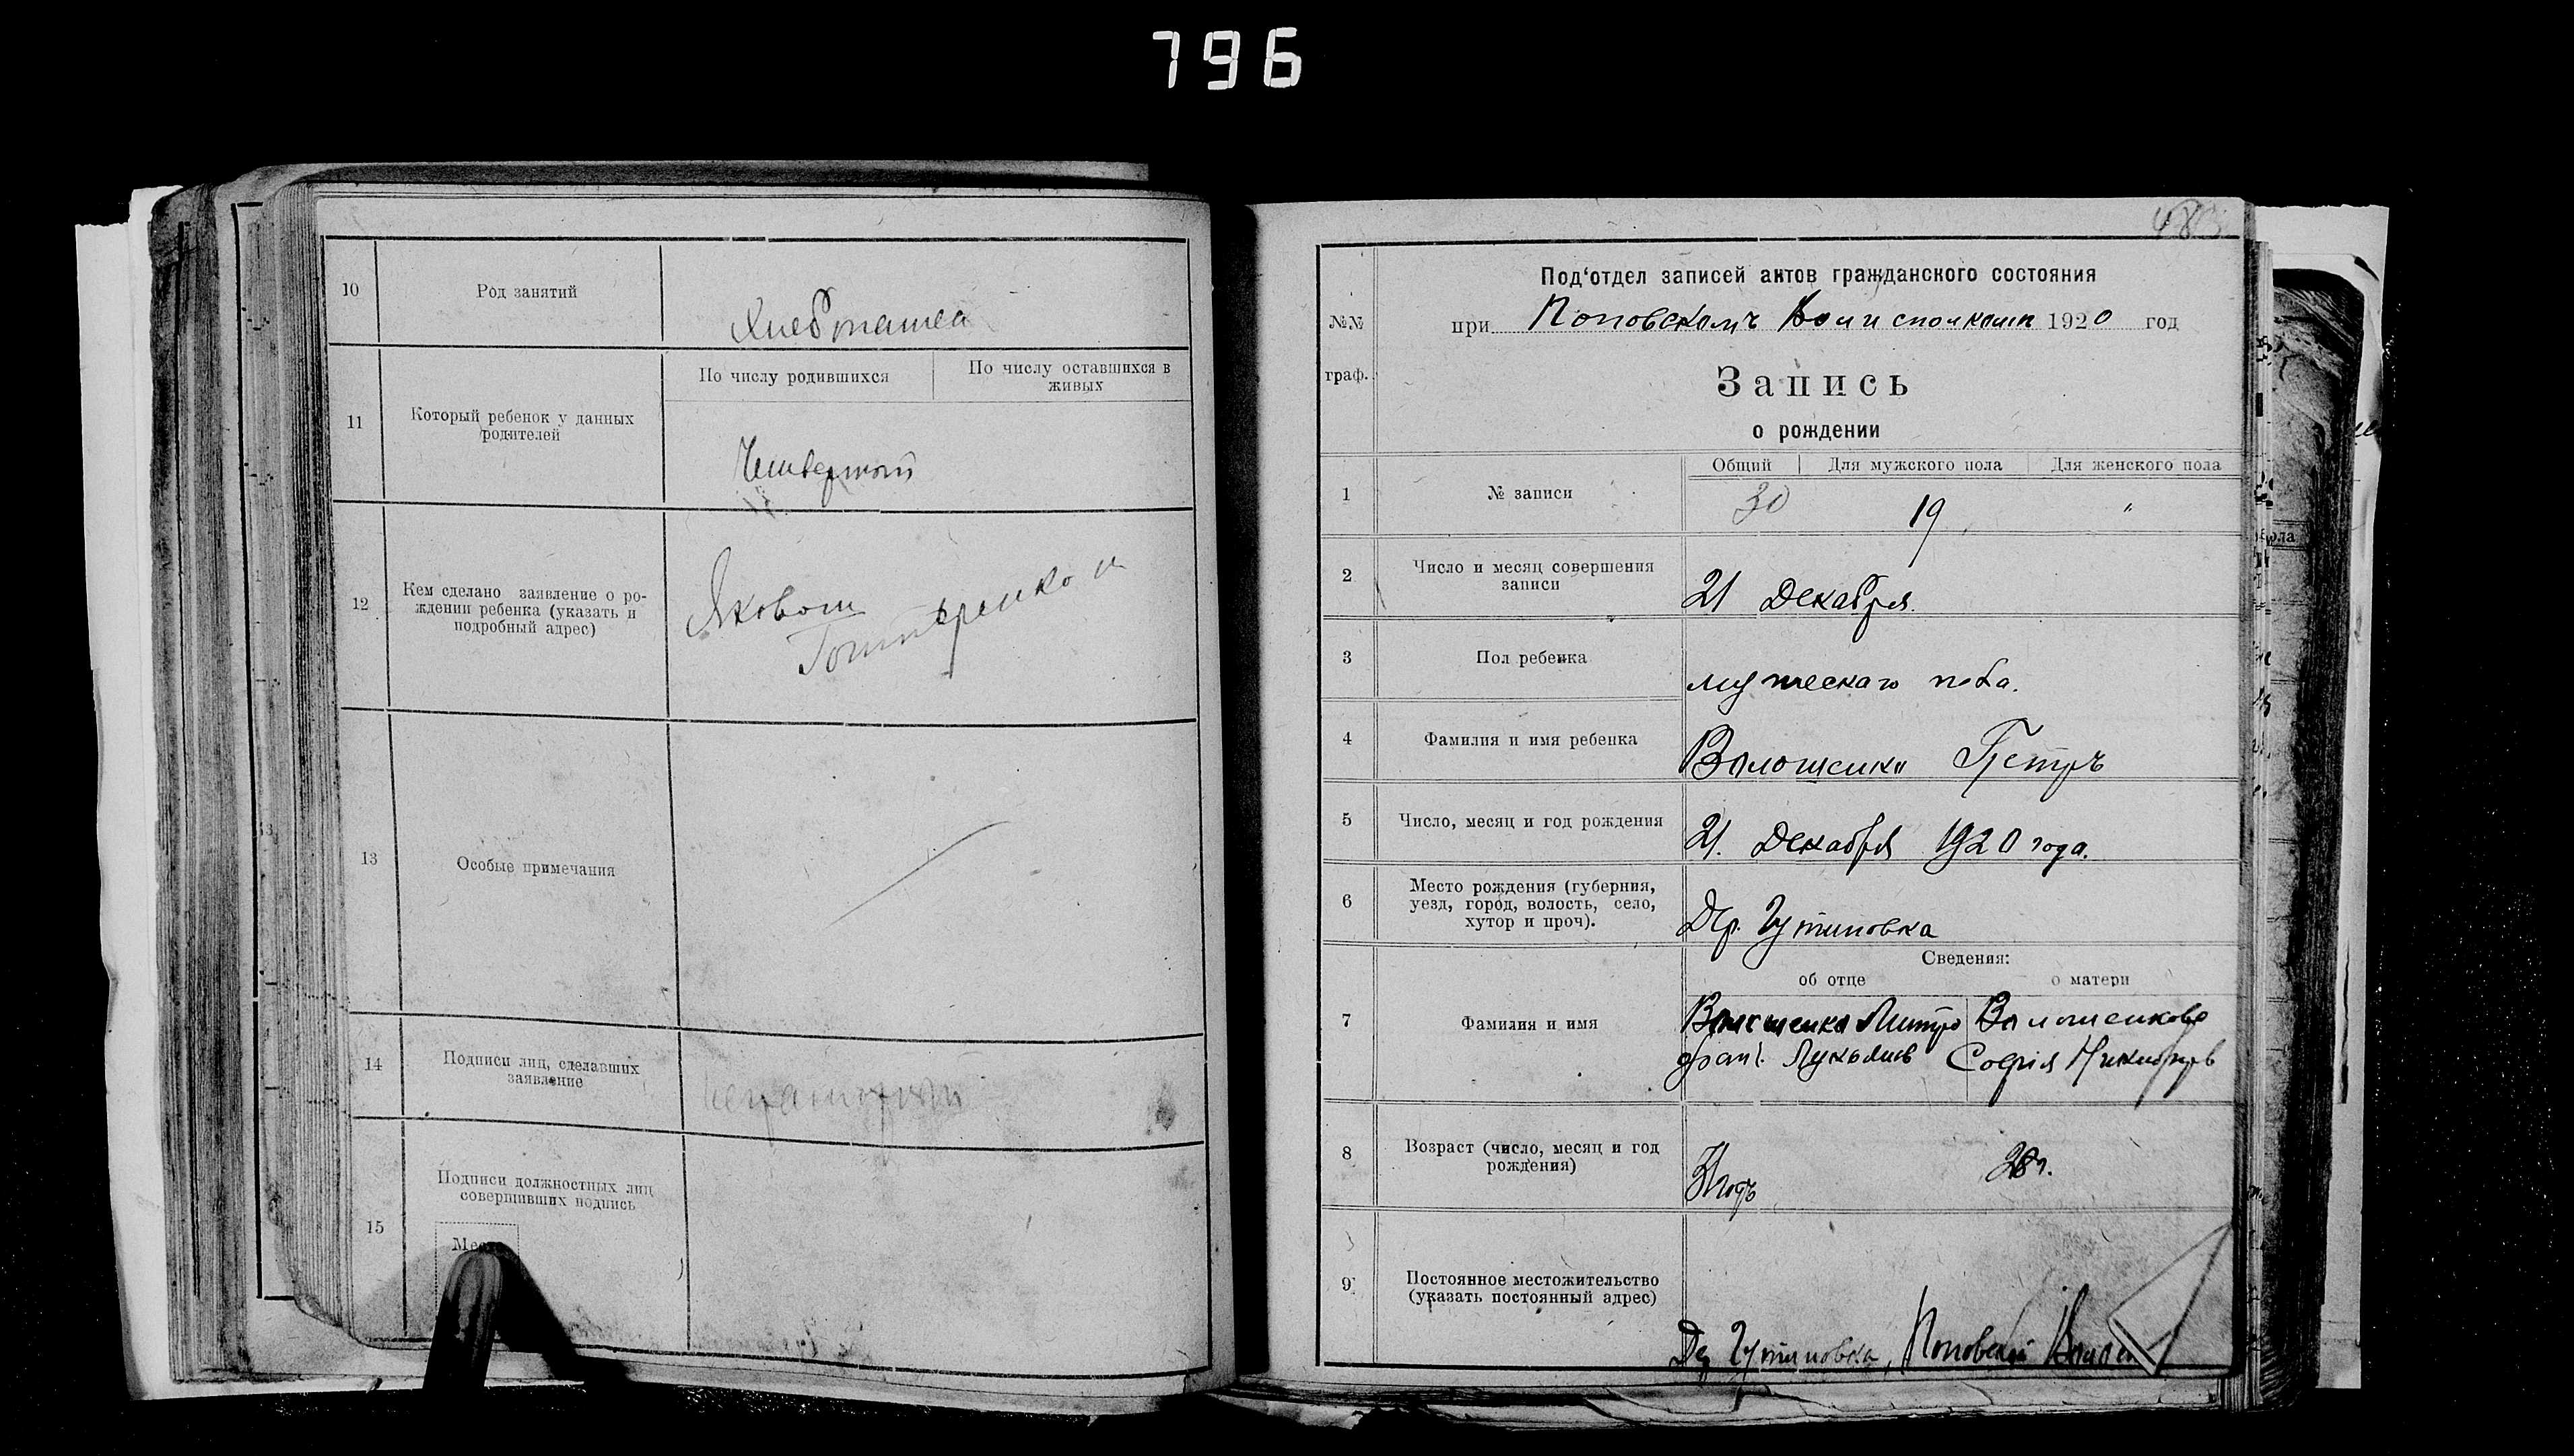 796
10
Род занятий
Хлебопашец
11
Который ребенок у данных
родителей
По числу родившихся
По числу оставшихся в
живых
Четвертой
12
Кем сделано заявление о ро-
ждении ребенка (указать и
подробный адрес)
Яковом
13
Особые примечания
14
Подписи лиц, сделавших
заявление
15
Подписи должностных лиц
совершивших подпись
483
№№
граф.
Под‘отдел записей актов гражданского состояния
при Поповскомъ Волисполкоми 1920 год
Запись
о рождении
1
№ записи
Общий
Для мужского пола
Для женского пола
30
19
"
2
Число и месяц совершения
записи
21 Декабря.
3
Пол ребенка
мужескаго пола.
4
Фамилия и имя ребенка
Волошенко Петръ
5
Число, месяц и год рождения
21. Декабря 1920 года.
6
Место рождения (губерния,
уезд, город, волость, село,
хутор и проч).
Дер.
Сведения:
об отце
о матери
7
Фамилия и имя
Волошенко
Волошенкова
София
8
Возраст (число, месяц и год
рождения)
31 годъ
28 г.
9
Постоянное местожительство
(указать постоянный адрес)
Поповской